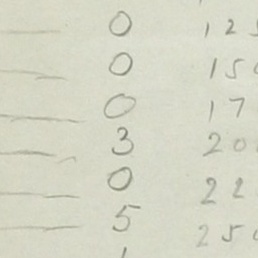 — 0 125
— 0 150
— 0 17
— 3 200
— 0 22
— 5 250